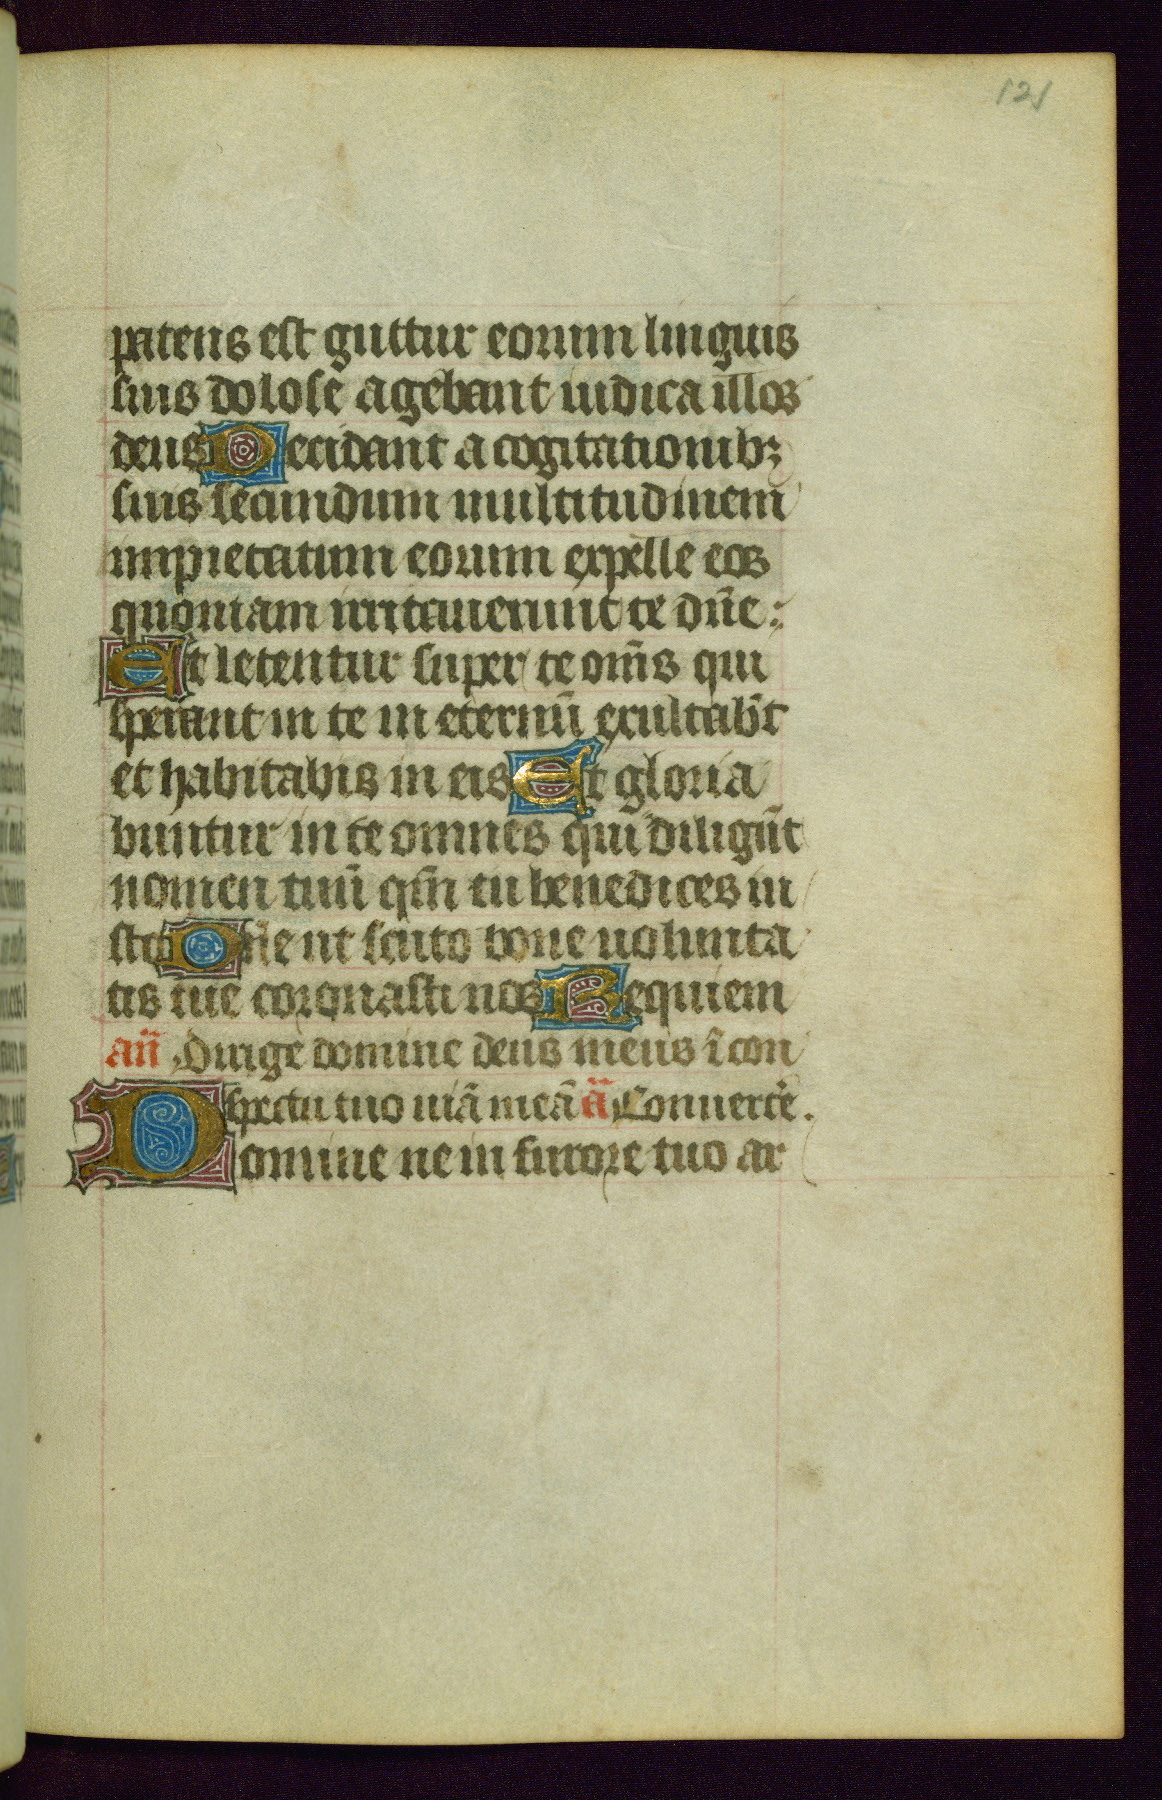 121
patens est guttur eorum linguis
suis dolose agebant iudica illos
deus Decidant a cogitationibꝫ
suis secundum multitudinem
impietatum eorum expelle eos
quoniam irritauerunt te dn̄e:
Et letentur super te om̄s qui
sperant in te in eternū exultab̄t
et habitabis in eis Et gloria
buntur in te omnes qui diligūt
nomen tuū qm̄ tu benedices iu
sto Dn̄e ut scuto bone uolunta
tis tue coronasti nos Requiem
an̄ Dirige domine deus meus ī con
spectu tuo uiā meā ā Conuerte.
Domine ne in furore tuo ar